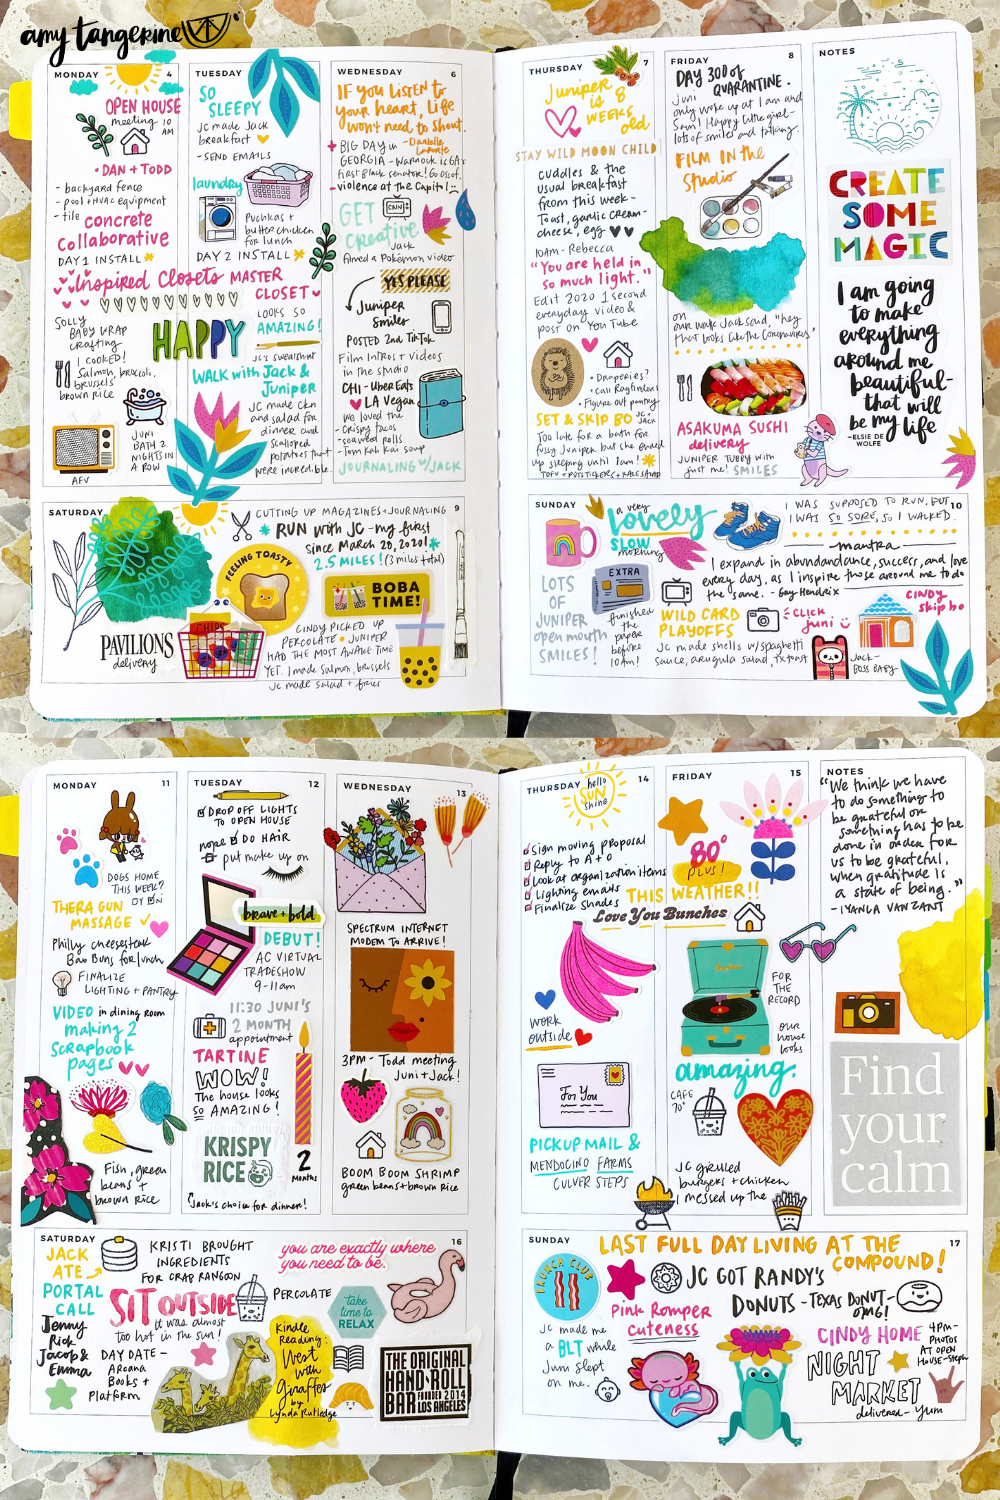 amy tangerine
MONDAY 4
OPEN HOUSE
meeting 10
AM
• DAN + TODD
- backyard fence
- pool + HVAC equipment
- tile
concrete
collaborative
DAY 1 INSTALL
Inspired Closets MASTER
CLOSET
SOLLY
BABY WRAP
CRAFTING
I COOKED!
Salmon, broccoli,
brussels
brown rice
JUNI
BATH 2
NIGHTS IN
A ROW
AFV
TUESDAY 5
SO
SLEEPY
JC made Jack
breakfast
- SEND EMAILS
laundry
Puchkas +
butter chicken
for lunch
DAY 2 INSTALL
LOOKS SO
AMAZING!
HAPPY
JC's sweatshirt
WALK with Jack &
Juniper
JC made ckn
and salad for
dinner and
scalloped
potatoes that
were incredible.
WEDNESDAY 6
IF YOU LISTEN to
your heart, Life
won't need to shout.
- Danielle
LaPorte
BIG DAY in
GEORGIA - Warnock is GA's
first Black senator! Go Ossoff.
violence at the Capitol :(
GET
Creative
CNN
Jack
filmed a Pokémon video
YES PLEASE
Juniper
Smiles
POSTED 2nd TikTok
Film Intros + videos
in the studio
CHI - Uber Eats
LA Vegan
We loved the
- Crispy tacos
- seaweed rolls
- Tom Kah Kai Soup
JOURNALING W/JACK
SATURDAY 9
CUTTING UP MAGAZINES + JOURNALING
RUN with JC - my first
since March 20, 2020!
2.5 MILES! (3 miles total)
FEELING TOASTY
BOBA
TIME!
PAVILIONS
delivery
CHIPS
CINDY PICKED UP
PERCOLATE • JUNIPER
HAD THE MOST AWAKE TIME
YET. I made Salmon, brussels
JC made salad + fries
THURSDAY 7
Juniper
is 8
WEEKS
old
STAY WILD MOON CHILD
CUDDLES and the
usual breakfast
from this week -
Toast, garlic cream-
cheese, egg
10AM - Rebecca
"You are held in
so much light."
Edit 2020 1 second
everyday video &
post on YouTube
• Draperies?
• Call Raghindas
• Figure out pantry
SET & SKIP BO JC Jack
Too late for a bath for
fussy Juniper but she ended
up sleeping until 1am!
TOFU + POTSTICKERS + KALE SALAD
FRIDAY 8
DAY 300 of
QUARANTINE.
Juni
only woke up at 1 am and
5am! Happy little girl -
lots of smiles and talking
FILM IN the
Studio
on
our walk Jack said, "hey
that looks like the Coronavirus"
ASAKUMA SUSHI
delivery
JUNIPER TUBBY with
just me! SMILES
NOTES
CREATE
SOME
MAGIC
I am going
to make
everything
around me
beautiful-
that will
be my life
- ELSIE DE
WOLFE
SUNDAY 10
a very
Lovely
SLOW
morning
I WAS SUPPOSED TO RUN, BUT
I WAS SO SORE, SO I WALKED.
mantra
I expand in abundance, success, and love
every day, as I inspire those around me to do
the same. - Gay Hendrix
LOTS
OF
JUNIPER
open mouth
SMILES!
EXTRA
finished
the
paper
before
10am!
WILD CARD
PLAYOFFS
CLICK
Juni
CINDY
skip bo
JC made shells w/spaghetti
sauce, arugula salad, tx toast
Jack -
BOSS BABY
MONDAY 11
DOGS HOME
THIS WEEK?
OY
THERA GUN
MASSAGE
Philly cheesesteak
Bao Buns for lunch
FINALIZE
LIGHTING + PANTRY
VIDEO in dining room
making 2
Scrapbook
pages
Fish, green
beans +
brown rice
TUESDAY 12
DROP OFF LIGHTS
TO OPEN HOUSE
nope DO HAIR
put make up on
brave + bold
DEBUT!
AC VIRTUAL
TRADESHOW
9-11am
11:30 JUNI'S
2 MONTH
appointment
TARTINE
WOW!
The house looks
SO AMAZING!
KRISPY
RICE
2
months
Jack's choice for dinner!
WEDNESDAY 13
SPECTRUM INTERNET
MODEM TO ARRIVE!
3PM - Todd meeting
Juni + Jack!
BOOM BOOM SHRIMP
green beans + brown rice
SATURDAY 16
JACK
ATE
PORTAL
CALL
Jenny
Rick
Jacob &
Emma
KRISTI BROUGHT
INGREDIENTS
FOR CRAB RANGOON
SIT OUTSIDE
it was almost
too hot in the sun!
DAY DATE -
Arcana
Books +
Platform
you are exactly where
you need to be.
PERCOLATE
take
time to
RELAX
Kindle
Reading:
West
with
Giraffes
by
Lynda Rutledge
THE ORIGINAL
HAND-ROLL
BAR FOUNDED 2014
LOS ANGELES
THURSDAY 14
hello
SUN
shine
Sign moving proposal
Reply to A + O
Look at organization items
Lighting emails
Finalize Shades
work
outside
For You
PICKUP MAIL &
MENDOCINO FARMS
CULVER STEPS
FRIDAY 15
80°
PLUS!
THIS WEATHER!!
Love You Bunches
FOR
THE
RECORD
our
house
looks
amazing.
CAFE
70°
JC grilled
burgers + chicken
I messed up the
NOTES
"We think we have
to do something to
be grateful or
something has to be
done in order for
us to be grateful,
when gratitude is
a state of being."
- IYANLA VANZANT
Find
your
calm
SUNDAY 17
LAST FULL DAY LIVING AT THE
COMPOUND!
BRUNCH CLUB
JC GOT RANDY'S
DONUTS - TEXAS DONUT -
OMG!
Pink Romper
cuteness
JC made me
a BLT while
Juni slept
on me.
CINDY HOME
4PM -
PHOTOS
AT OPEN
HOUSE - Steph
NIGHT
MARKET
delivered - Yum